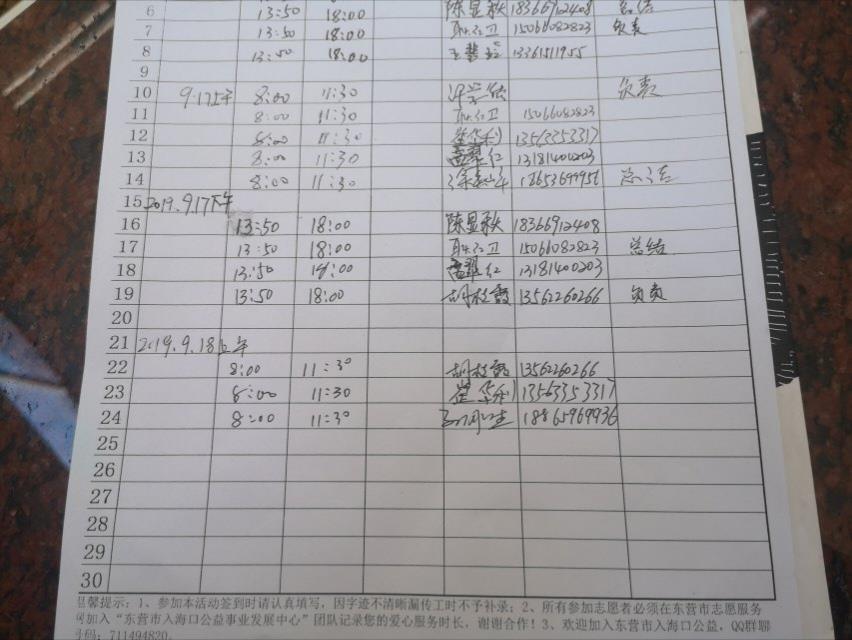 6 13:50 18:00 陈显秋 18366912408 总结
7 13:50 18:00 耿红卫 15066082823 负责
8 13:50 18:00 13361511955
9
10 9.17上午 8:00 11:30 负责
11 8:00 11:30 耿红卫 15066082823
12 8:00 11:30 崔华利 13563353317
13 8:00 11:30 红 13181400203
14 8:00 11:30 18653699956 总结
15 2019.9.17下午
16 13:50 18:00 陈显秋 18366912408
17 13:50 18:00 耿红卫 15066082823 总结
18 13:50 18:00 红 13181400203
19 13:50 18:00 胡枝霞 13562260266 负责
20
21 2019.9.18上午
22 8:00 11:30 胡枝霞 13562260266
23 8:00 11:30 崔华利 13563353317
24 8:00 11:30 18865969936
25
26
27
28
29
30
温馨提示：1、参加本活动签到时请认真填写，因字迹不清晰漏传工时不予补录；2、所有参加志愿者必须在东营市志愿服务
网加入“东营市入海口公益事业发展中心”团队记录您的爱心服务时长，谢谢合作！3、欢迎加入东营市入海口公益，QQ群聊
号码：711494820.